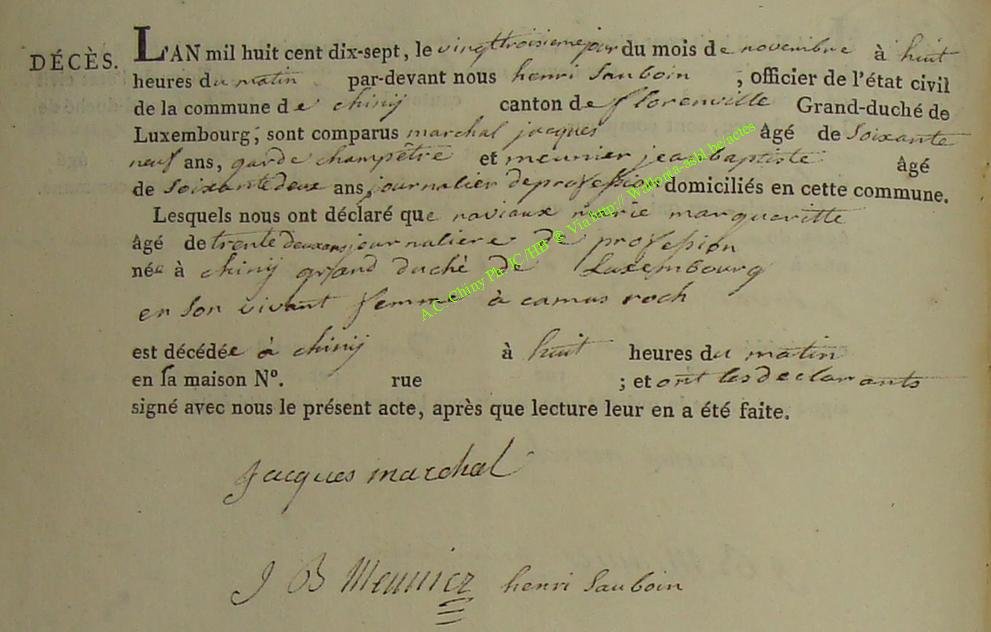 DÉCÈS. L'AN mil huit cent dix-sept, le vingttroisieme jour du mois de novembre à huit
heures du matin par-devant nous henri Sauboin ; officier de l'état civil
de la commune de chinij canton de florenville Grand-duché de
Luxembourg; sont comparus marchal jacques âgé de Soixante
neuf ans, garde champêtre et meunier jean baptiste âgé
de Soixante deux ans journalier de profession domiciliés en cette commune.
Lesquels nous ont déclaré que naviaux marie margueritte
âgé de trente deux ans journaliere de profession
née à chinij grand duché de Luxembourg
en son vivant femme à camus roch
est décédée à chinij à huit heures du matin
en sa maison N°. rue ; et ont les declarants
signé avec nous le présent acte, après que lecture leur en a été faite.
Jacques marchal
J B Meunier henri Sauboin
A.C. Chiny Ph JC/HB @ Via http:// Wallonia-asbl.be/actes